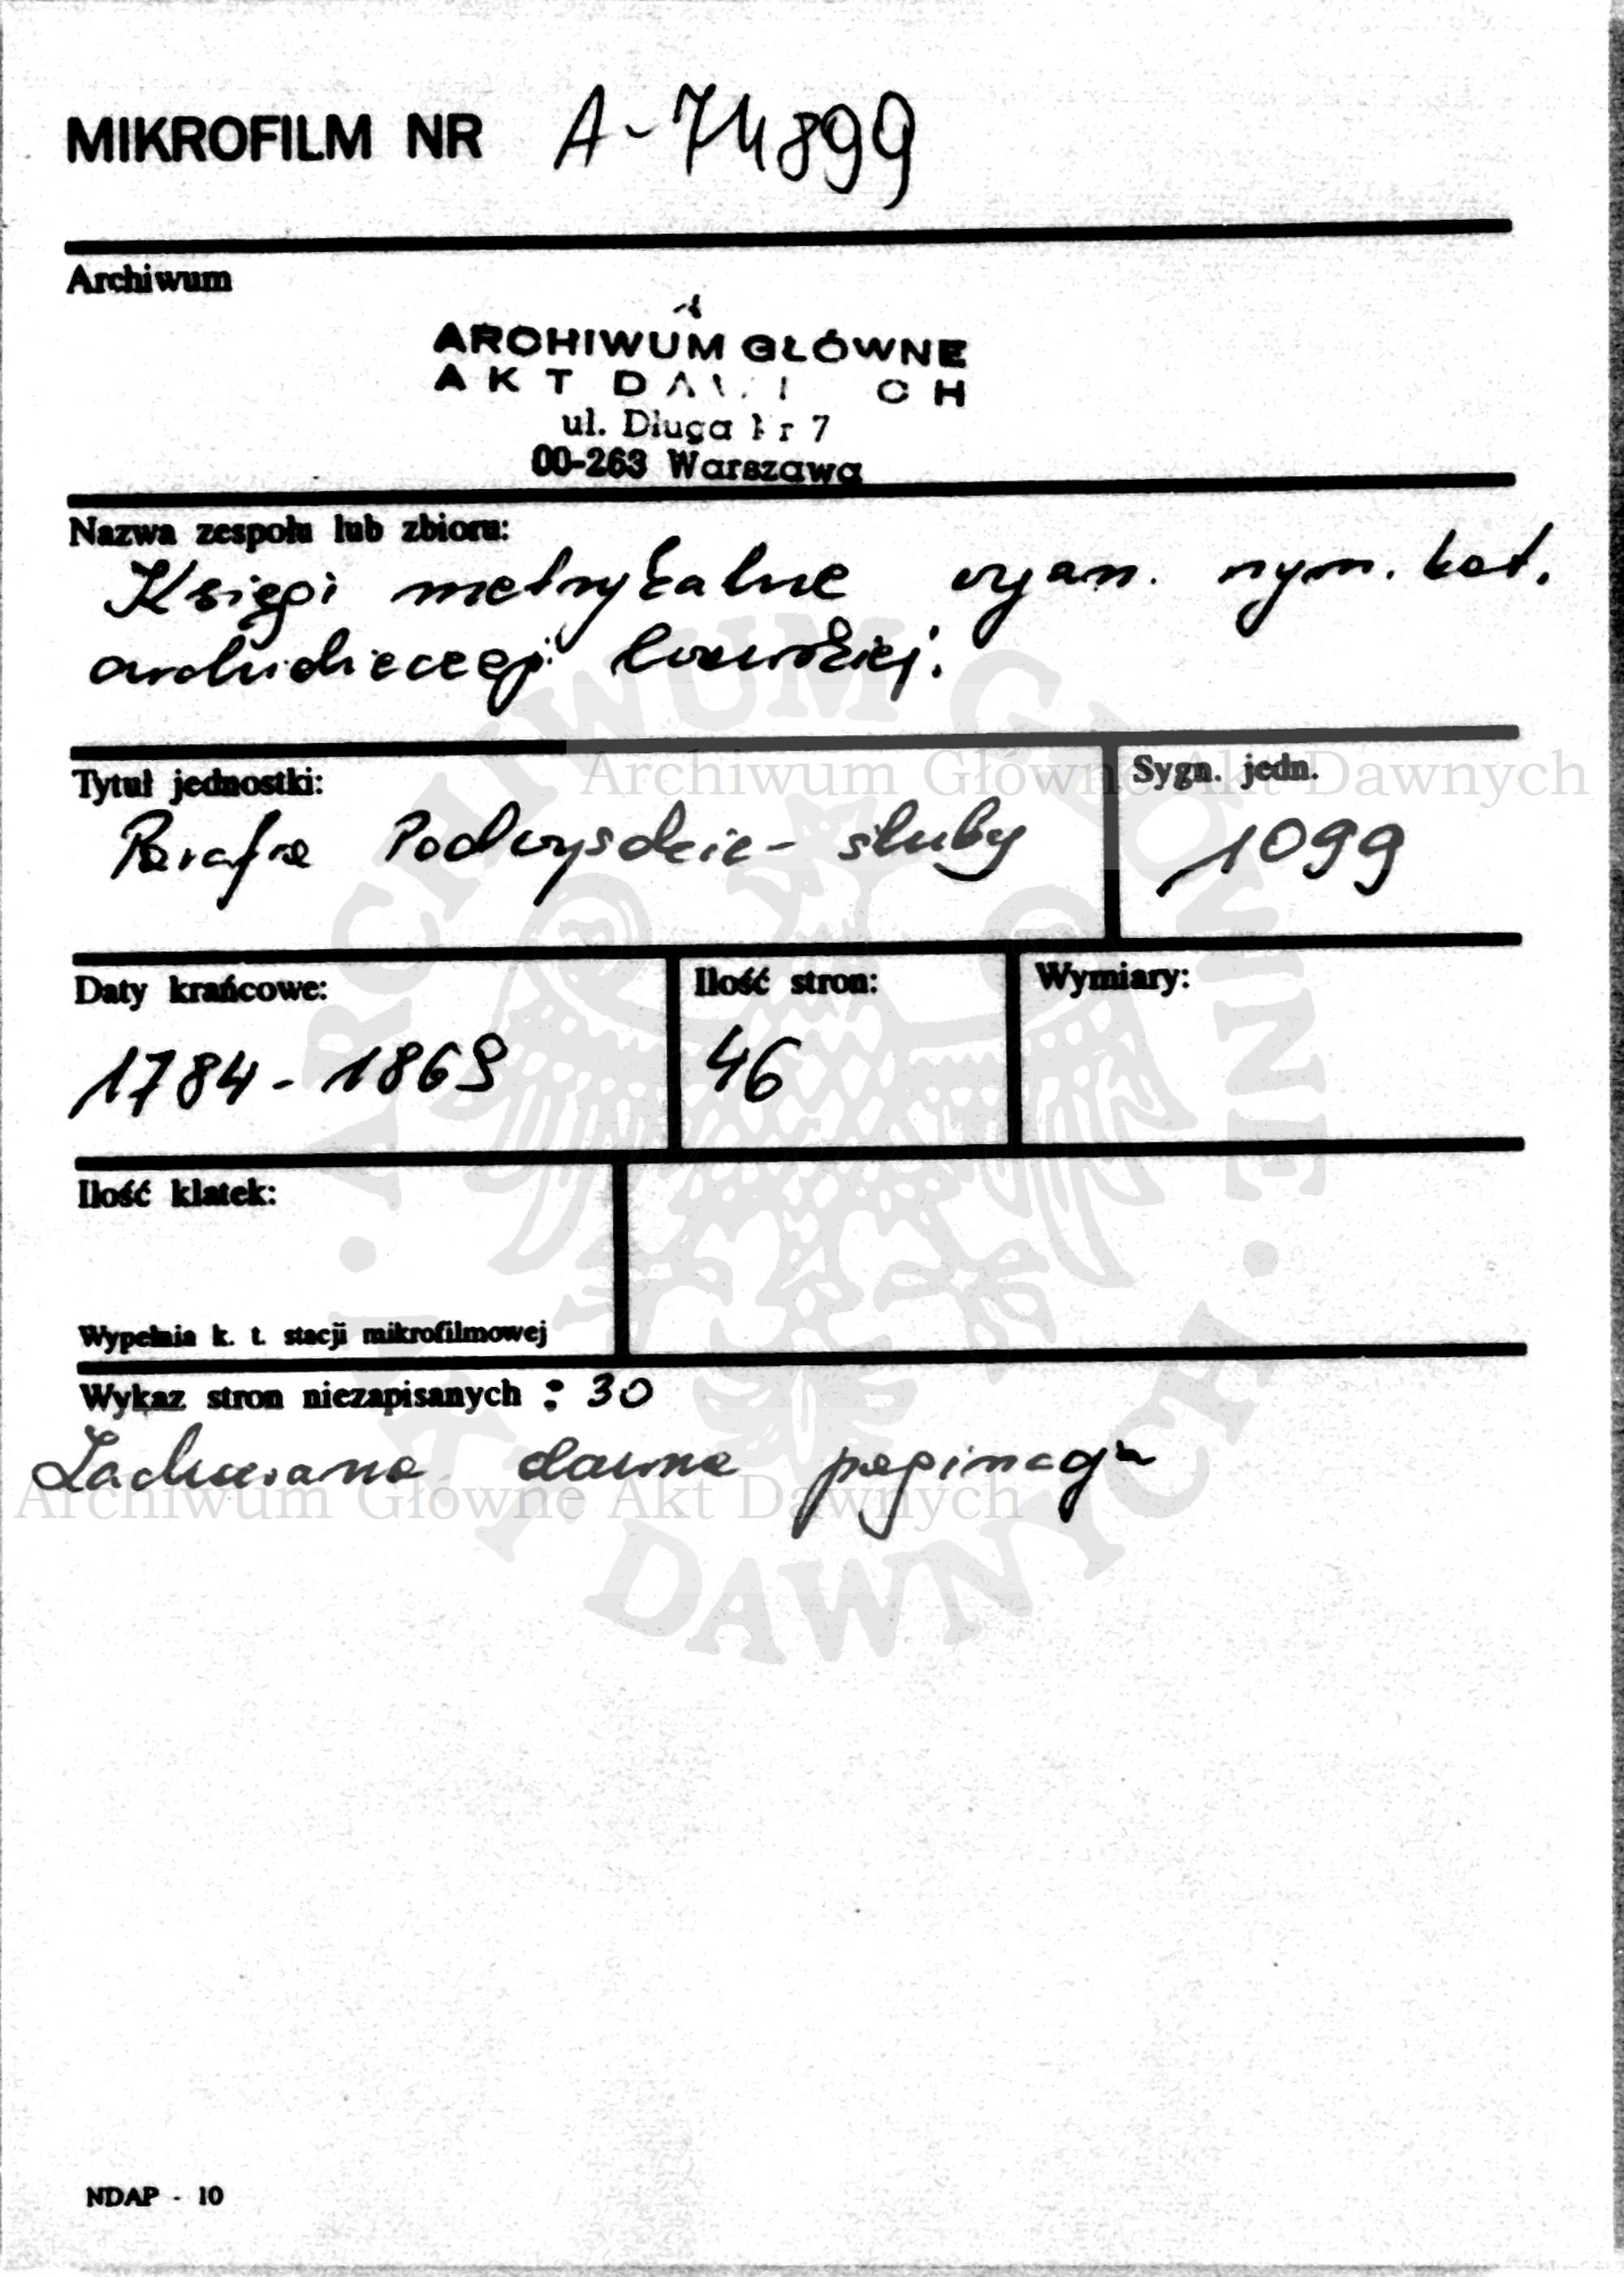 MIKROFILM NR A-74899
Archiwum
ARCHIWUM GŁÓWNE
AKT DAW CH
ul. Długa Nr 7
00-263 Warszawa
Nazwa zespołu lub zbioru:
Księgi metrykalne wyzn. rzym. kat.
archidiecezji lwowskiej.
Tytuł jednostki:
Parafia Podwysokie - śluby
Sygn. jedn.
1099
Daty krańcowe:
1784 - 1869
Ilość stron:
46
Wymiary:
Ilość klatek:
Wypełnia k. t. stacji mikrofilmowej
Wykaz stron niezapisanych : 30
Zachowana dawna paginacja
NDAP - 10
Archiwum Główne Akt Dawnych
Archiwum Główne Akt Dawnych
ARCHIWUM GŁÓWNE
AKT DAWNYCH